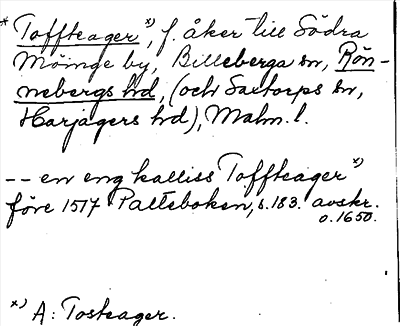 * Toffteager *), f. åker till Södra
Möinge by, Billeberga sn, Rön-
nebergs hd, (och Saxtorps sn,
Harjagers hd), Malm. l.
-- en eng kalliss Toffteager *)
före 1517 Palteboken, s. 183. avskr.
o. 1650.
*) A: Tosteager.